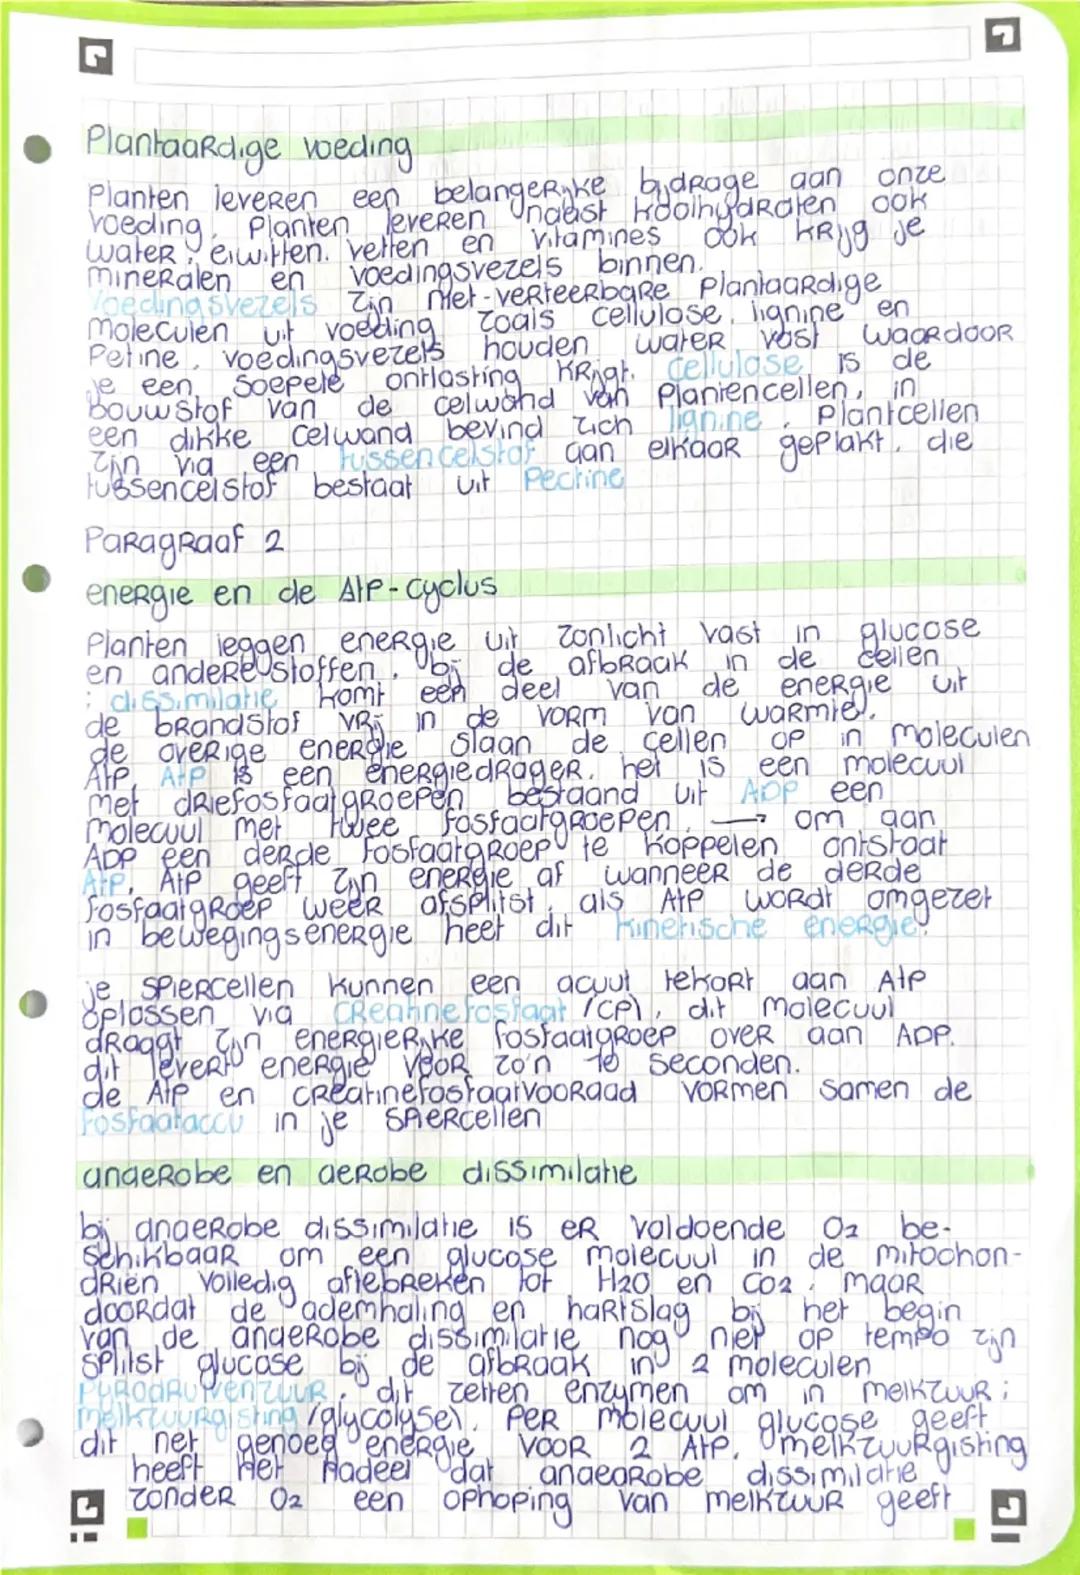 Plantaardige voeding
Planten leveren een belangerijke bijdrage aan onze
voeding. Planten leveren naast koolhydraten ook
water, eiwitten, vetten en vitamines ook krijg je
mineralen en voedingsvezels binnen.
Voedingsvezels zijn niet-verteerbare plantaardige
moleculen uit voeding zoals cellulose, lignine en
Petine. voedingsvezels houden water vast waardoor
je een soepele ontlasting krijgt. cellulose is de
bouwstof van de celwand van Plantencellen, in
een dikke celwand bevind zich lignine. Plantcellen
zijn via een tussencelstof aan elkaar geplakt. die
tussencelstof bestaat uit Pectine
Paragraaf 2
energie en de ATP-cyclus
Planten leggen energie uit zonlicht vast in glucose
en andere stoffen. bij de afbraak in de cellen
: dissimilatie komt een deel van de energie uit
de brandstof vrij in de vorm van warmte.
de overige energie slaan de cellen op in moleculen
ATP. ATP is een energiedrager. het is een molecuul
met driefosfaatgroepen bestaand uit ADP een
molecuul met twee fosfaatgroepen. → om aan
ADP een derde fosfaatgroep te koppelen ontstaat
ATP. ATP geeft zijn energie af wanneer de derde
fosfaatgroep weer afsplitst. als ATP wordt omgezet
in bewegingsenergie heet dit kinetische energie.
je spiercellen kunnen een acuut tekort aan ATP
oplossen via creatinefosfaat (CP), dit molecuul
draagt zijn energierijke fosfaatgroep over aan ADP.
dit levert energie voor zo'n 10 seconden.
de ATP en creatinefosfaatvooraad vormen samen de
fosfaataccu in je spiercellen
anaerobe en aerobe dissimilatie
bij anaerobe dissimilatie is er voldoende O2 be-
schikbaar om een glucose molecuul in de mitochon-
driën volledig aftebreken tot H2O en CO2. maar
doordat de ademhaling en hartslag bij het begin
van de anaerobe dissimilatie nog niet op tempo zijn
splitst glucose bij de afbraak in 2 moleculen
pyrodruivenzuur. dit zetten enzymen om in melkzuur:
melkzuurgisting (glycolyse). Per molecuul glucose geeft
dit net genoeg energie voor 2 ATP. melkzuurgisting
heeft het nadeel dat anaearobe dissimilatie
zonder O2 een ophoping van melkzuur geeft